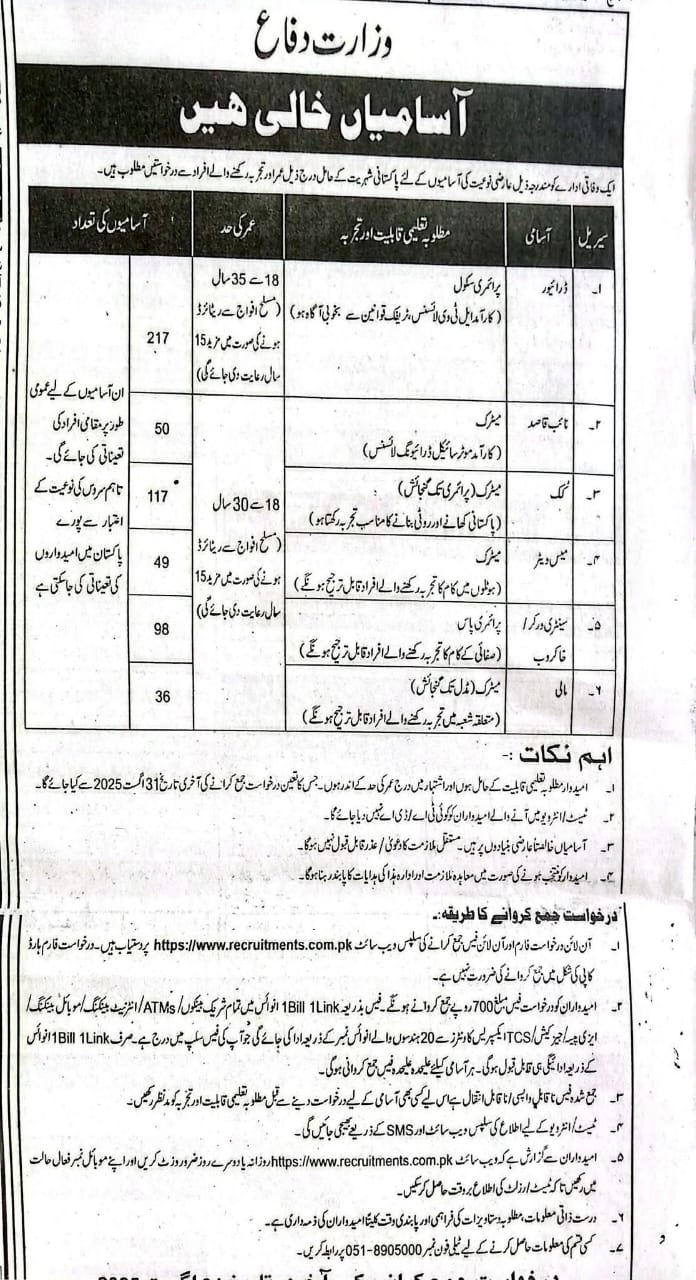 وزارت دفاع
آسامیاں خالی ہیں
ایک وفاقی ادارے کو مندرجہ ذیل عارضی نوعیت کی آسامیوں کے لئے پاکستانی شہریت کے حامل درج ذیل عمر اور تجربہ رکھنے والے افراد سے درخواستیں مطلوب ہیں۔
سیریل آسامی مطلوبہ تعلیمی قابلیت اور تجربہ عمر کی حد آسامیوں کی تعداد
۱۔ ڈرائیور
پرائمری سکول
(کارآمد ایل ٹی وی لائسنس، ٹریفک قوانین سے بخوبی آگاہ ہو)
18 سے 35 سال
(مسلح افواج سے ریٹائرڈ
ہونے کی صورت میں مزید 15
سال رعایت دی جائے گی)
217
۲۔ نائب قاصد
میٹرک
(کارآمد موٹر سائیکل ڈرائیونگ لائسنس)
50
۳۔ کک
میٹرک (پرائمری تک گنجائش)
(پاکستانی کھانے اور روٹی بنانے کا مناسب تجربہ رکھتا ہو)
117
۴۔ میس ویٹر
میٹرک
(ہوٹلوں میں کام کا تجربہ رکھنے والے افراد قابل ترجیح ہونگے)
49
۵۔ سینٹری ورکر/
خاکروب
پرائمری پاس
(صفائی کے کام کا تجربہ رکھنے والے افراد قابل ترجیح ہونگے)
98
۶۔ مالی
میٹرک (مڈل تک گنجائش)
(متعلقہ شعبہ میں تجربہ رکھنے والے افراد قابل ترجیح ہونگے)
36
18 سے 30 سال
(مسلح افواج سے ریٹائرڈ
ہونے کی صورت میں مزید 15
سال رعایت دی جائے گی)
ان آسامیوں کے لیے عمومی
طور پر مقامی افراد کی
تعیناتی کی جائے گی۔
تاہم سروس کی نوعیت کے
اعتبار سے پورے
پاکستان میں امیدواروں
کی تعیناتی کی جاسکتی ہے
اہم نکات :-
۱۔ امیدوار مطلوبہ تعلیمی قابلیت کے حامل ہوں اور اشتہار میں درج عمر کی حد کے اندر ہوں۔ جس کا تعین درخواست جمع کرانے کی آخری تاریخ 31 اگست 2025 سے کیا جائے گا۔
۲۔ ٹیسٹ/انٹرویو میں آنے والے امیدواران کو کوئی ٹی اے/ڈی اے نہیں دیا جائے گا۔
۳۔ آسامیاں خالصتاً عارضی بنیادوں پر ہیں۔ مستقل ملازمت کا دعویٰ/عذر قابل قبول نہیں ہوگا۔
۴۔ امیدوار کو منتخب ہونے کی صورت میں معاہدہ ملازمت اور ادارہ ہذا کی ہدایات کا پابند رہنا ہوگا۔
درخواست جمع کروانے کا طریقہ:۔
۱۔ آن لائن درخواست فارم اور آن لائن فیس جمع کرانے کی سلپس ویب سائٹ https://www.recruitments.com.pk پر دستیاب ہیں۔ درخواست فارم ہارڈ
کاپی کی شکل میں جمع کروانے کی ضرورت نہیں ہے۔
۲۔ امیدواران کو درخواست فیس مبلغ 700 روپے جمع کروانے ہونگے۔ فیس بذریعہ 1Bill 1Link انوائس میں تمام شریک بینکوں/ATMs/انٹرنیٹ بینکنگ/موبائل بینکنگ/
ایزی پیسہ/جیز کیش/TCS ایکسپریس کاونٹرز سے 20 ہندسوں والے انوائس نمبر کے ذریعہ ادا کی جائے گی جو آپ کی فیس سلپ میں درج ہے۔ صرف 1Bill 1Link انوائس
کے ذریعہ ادائیگی ہی قابل قبول ہوگی۔ ہر آسامی کیلئے علیحدہ علیحدہ فیس جمع کروانی ہوگی۔
۳۔ جمع شدہ فیس ناقابل واپسی/ناقابل انتقال ہے اس لیے کسی بھی آسامی کے لیے درخواست دینے سے قبل مطلوبہ تعلیمی قابلیت اور تجربہ کو مدنظر رکھیں۔
۴۔ ٹیسٹ/انٹرویو کے لیے اطلاع کی سلپس ویب سائٹ اور SMS کے ذریعے بھیجی جائیں گی۔
۵۔ امیدواران سے گزارش ہے کہ ویب سائٹ https://www.recruitments.com.pk روزانہ یا دوسرے روز ضرور وزٹ کریں اور اپنے موبائل نمبر فعال حالت
میں رکھیں تاکہ ٹیسٹ/رزلٹ کی اطلاع بروقت حاصل کرسکیں۔
۶۔ درست ذاتی معلومات، مطلوبہ دستاویزات کی فراہمی اور پابندی وقت کلیتاً امیدواران کی ذمہ داری ہے۔
۷۔ کسی قسم کی معلومات حاصل کرنے کے لیے ٹیلی فون نمبر 8905000-051 پر رابطہ کریں۔